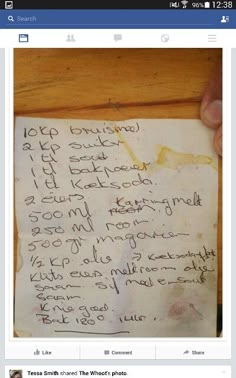 98% 12:38
Search
10 kp bruismeel
2 kp suiker
1 tl sout
1 tl bakpoeier
1 tl Koeksoda.
2 eiers
Karringmelk
500 ml
250 ml room
500 gr magarien
1/2 kp olie → Koeksoda
Klits eiers melk room olie
saam. Sif meel e sout
saam
Knie goed.
Bak 180° 1 uur.
Like
Comment
Share
Tessa Smith shared The Whoot's photo.